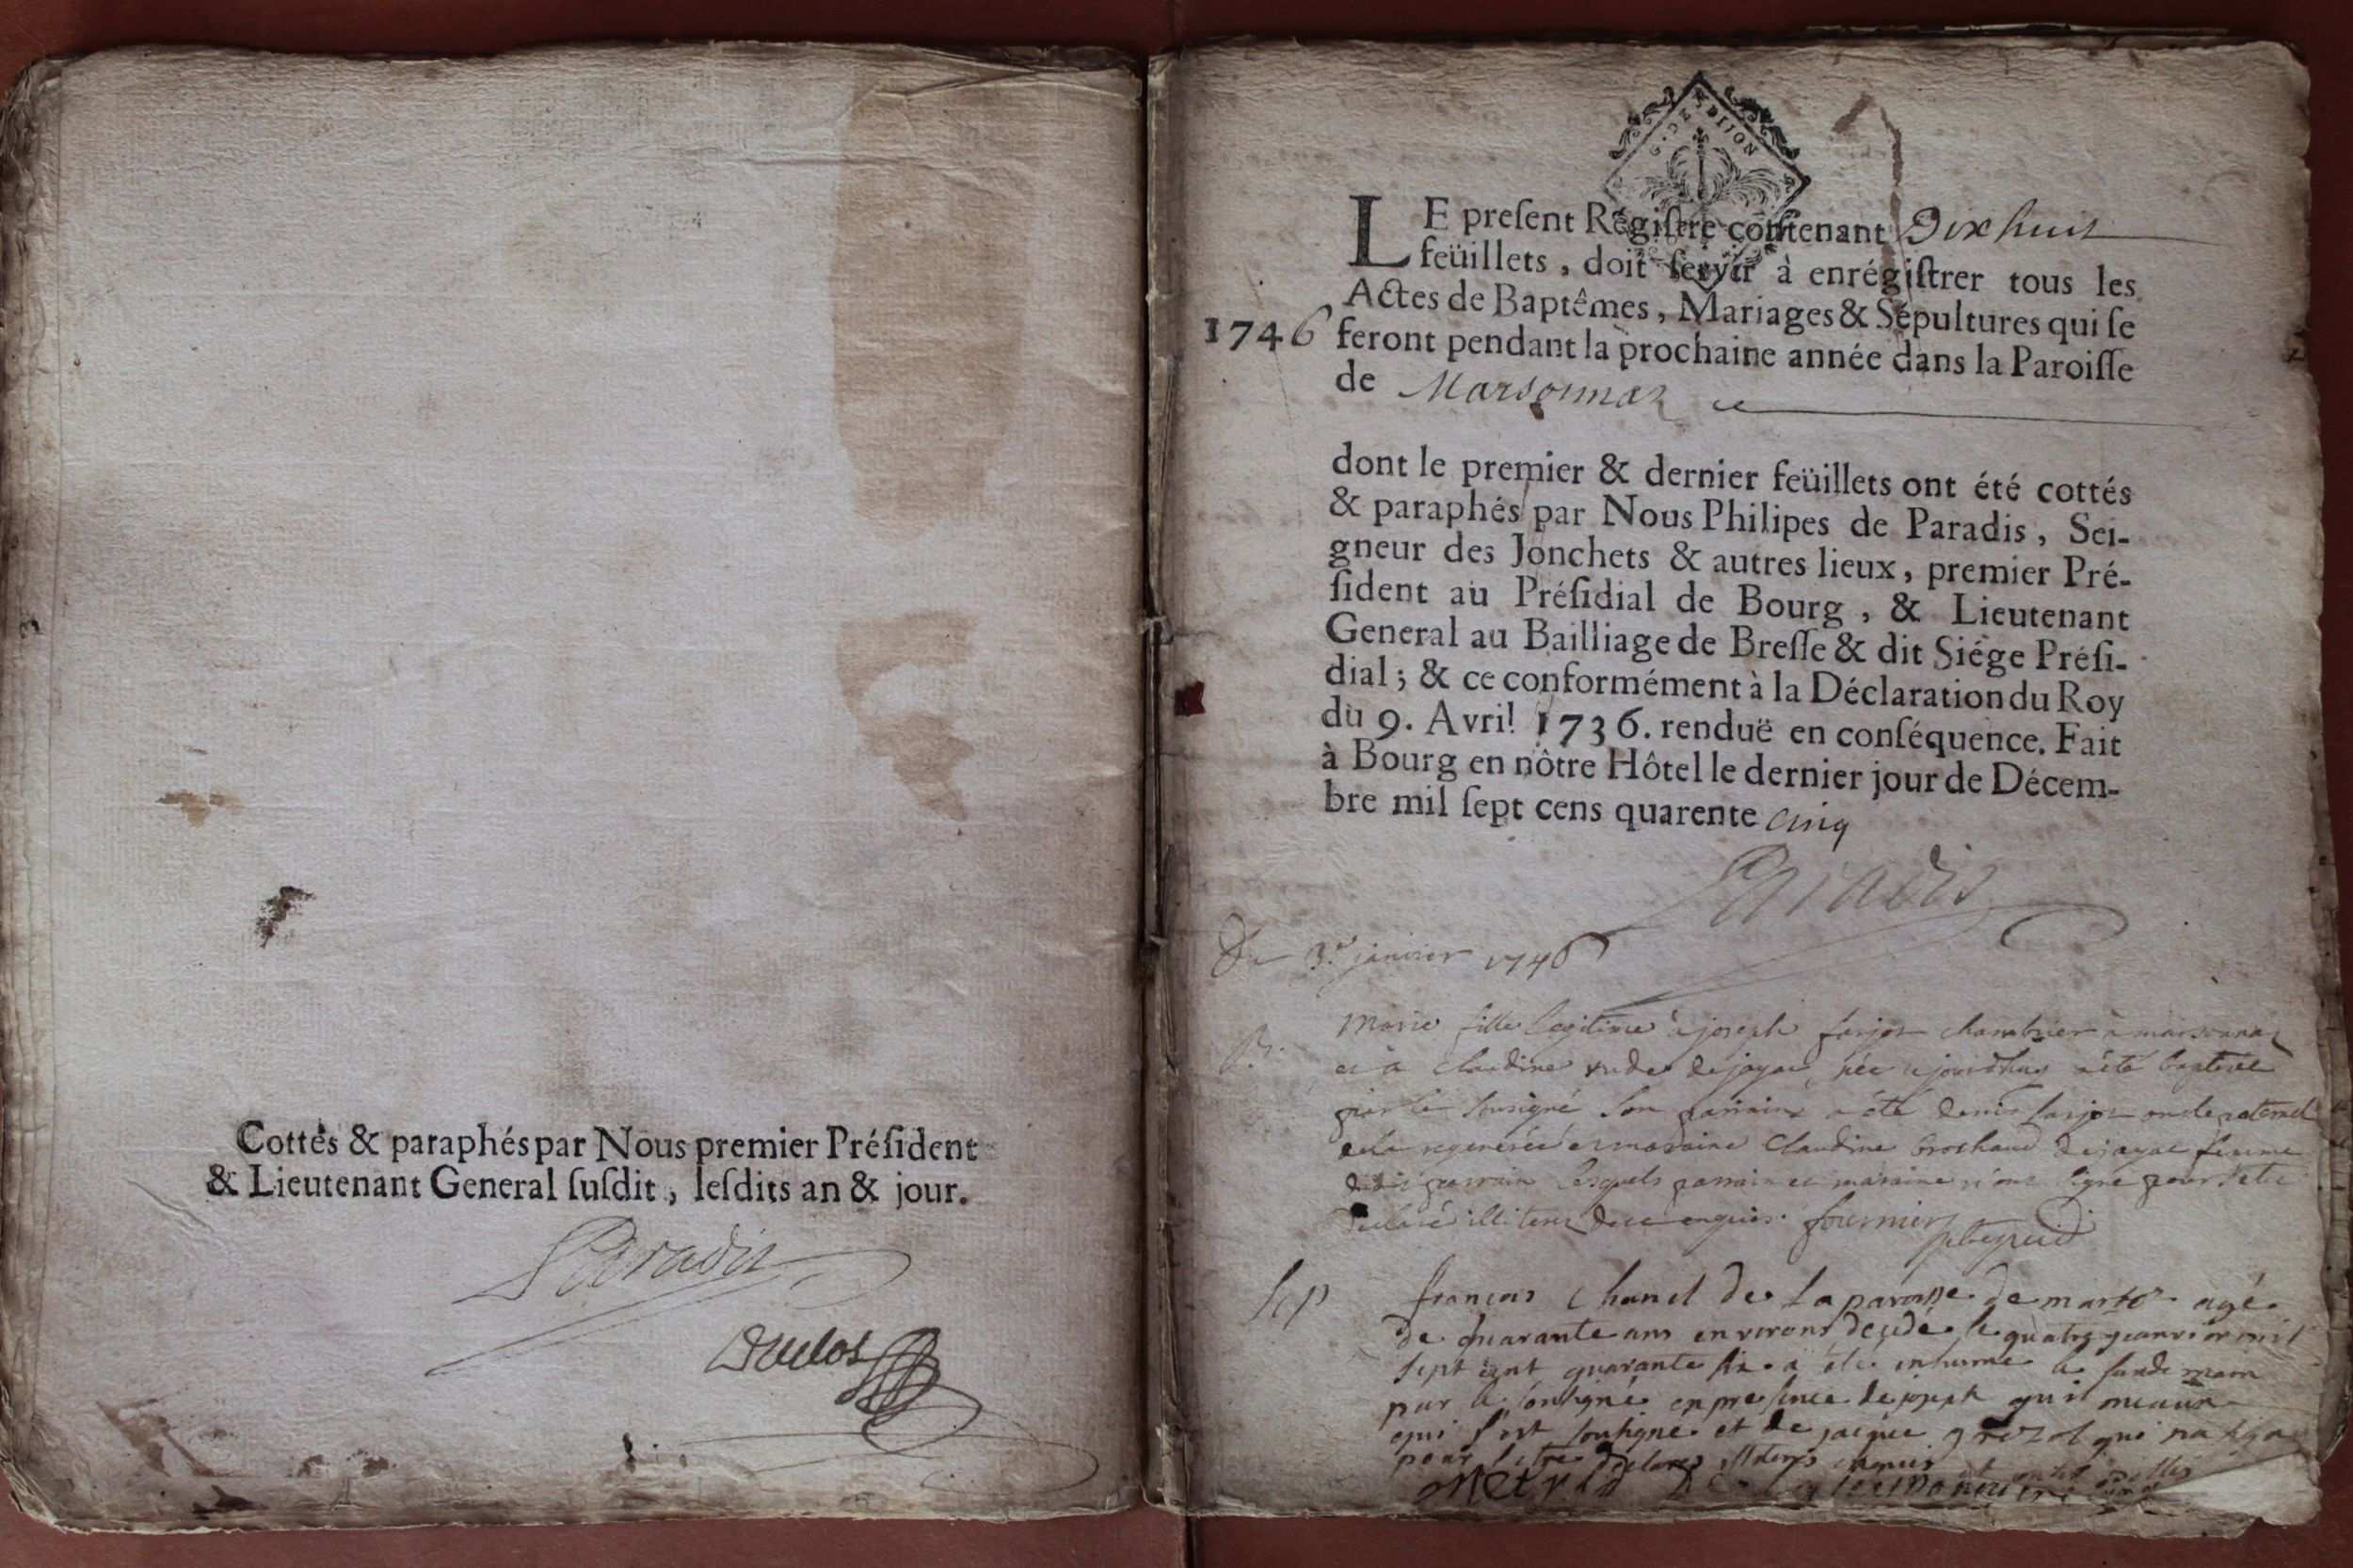 Cottés & paraphés par Nous premier Préſident
& Lieutenant General ſuſdit, leſdits an & jour.
Paradis
Duclos
G. DE DIJON
LE preſent Régiſtre contenant Dix huit
feüillets, doit ſervir à enrégiſtrer tous les
Actes de Baptêmes, Mariages & Sépultures qui ſe
1746 feront pendant la prochaine année dans la Paroiſſe
de Marsonnaz
dont le premier & dernier feüillets ont été cottés
& paraphés par Nous Philipes de Paradis, Sei-
gneur des Jonchets & autres lieux, premier Pré-
ſident au Préſidial de Bourg, & Lieutenant
General au Bailliage de Breſſe & dit Siége Préſi-
dial; & ce conformément à la Déclaration du Roy
du 9. Avril 1736. renduë en conſéquence. Fait
à Bourg en nôtre Hôtel le dernier jour de Décem-
bre mil ſept cens quarente cinq
Paradis
Du 3e janvier 1746
B. Marie fille legitime à joseph farjot à marsonnaz
et à Claudine de jayac, née ajourdhuy a été baptisée
par le sousigné son parrain a été denis farjot oncle paternel
de la regenerée et maraine Claudine brochand de jayac femme
parrain lesquels parrain et maraine n'ont signé pour s'etre
declaré illiteres de ce enquis. fournier
Sep françois Chanel de la paroisse de marso agé
de quarante ans environs décédé le quatre janvier mil
sept cent quarante six a été inhumé le landemain
par le sousigné en presence de joseph
qui s'est sousigné et de qui na signé
pour s'etre declaré enquis